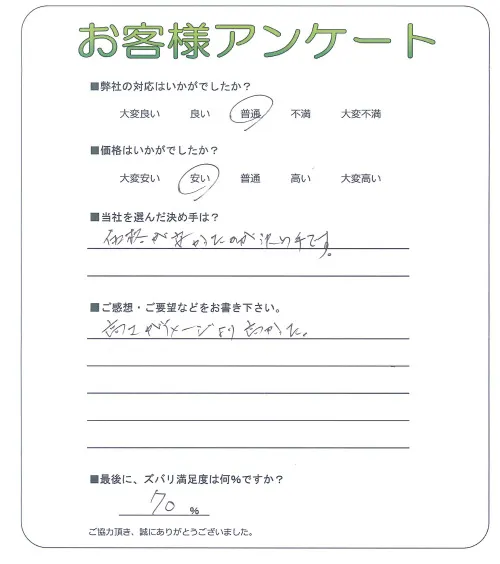 お客様アンケート
■弊社の対応はいかがでしたか？
大変良い 良い 普通 不満 大変不満
■価格はいかがでしたか？
大変安い 安い 普通 高い 大変高い
■当社を選んだ決め手は？
価格が安かったのが決め手です。
■ご感想・ご要望などをお書き下さい。
がイメージより かった。
■最後に、ズバリ満足度は何％ですか？
70 %
ご協力頂き、誠にありがとうございました。